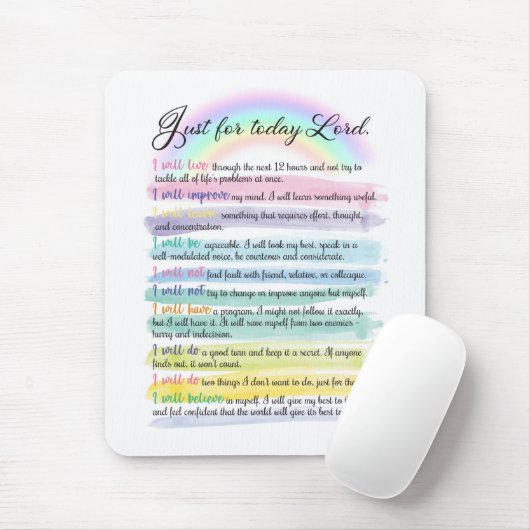 Just for today Lord,
I will live through the next 12 hours and not try to
tackle all of life's problems at once.
I will improve my mind. I will learn something useful.
I will learn something that requires effort, thought,
and concentration.
I will be agreeable. I will look my best, speak in a
well-modulated voice, be courteous and considerate.
I will not find fault with friend, relative, or colleague.
I will not try to change or improve anyone but myself.
I will have a program. I might not follow it exactly,
but I will have it. I will save myself from two enemies -
hurry and indecision.
I will do a good turn and keep it a secret. If anyone
finds out, it won't count.
I will do two things I don't want to do, just for
I will believe in myself. I will give my best to
and feel confident that the world will give its best